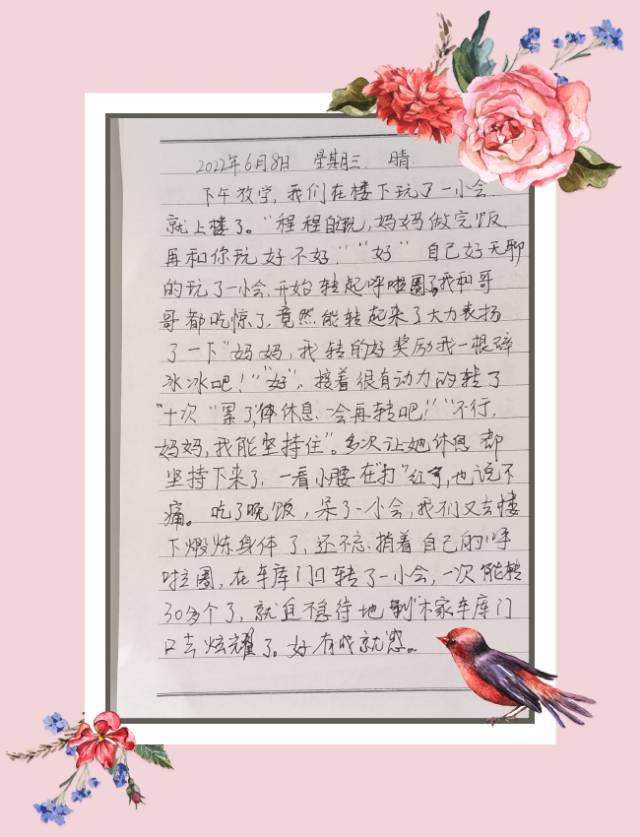 2022年6月8日 星期三 晴
下午放学,我们在楼下玩了一小会,
就上楼了。“程程自己玩,妈妈做完饭
再和你玩好不好?”“好”自己好无聊
的玩了一小会,开始转起呼啦圈了,我和哥
哥都吃惊了,竟然能转起来了大力表扬
了一下“妈妈,我转的好奖励我一根碎
冰冰吧!”“好”。接着很有动力的转了
十次“累了,休息一会再转吧!”“不行,
妈妈,我能坚持住”。多次让她休息都
坚持下来了,一看小腰在“打”红了,也说不
痛。吃了晚饭,呆了一小会,我们又去楼
下煅炼身体了,还不忘捎着自己的呼
啦圈,在车库门口转了一小会,一次能转
30多个了,就迫不急待地到木家车库门
口去炫耀了。好有成就感。